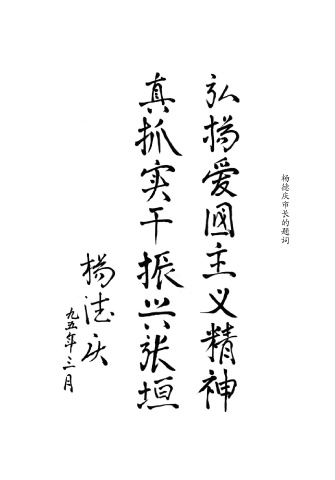 杨德庆市长的题词
弘扬爱國主义精神
真抓实干振兴张垣
杨德庆
九五年三月